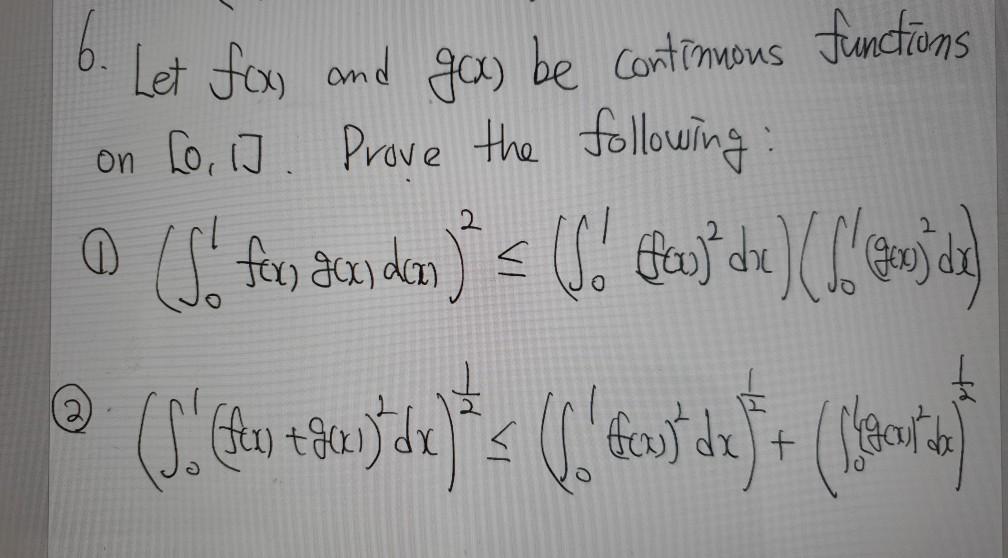 6. Let f(x) and g(x) be continuous functions
on [0,1]. Prove the following:
① (∫₀¹ f(x) g(x) d(x))² ≤ (∫₀¹ (f(x))² dx) (∫₀¹ (g(x))² dx)
② (∫₀¹ (f(x) + g(x))² dx)^{1/2} ≤ (∫₀¹ (f(x))² dx)^{1/2} + (∫₀¹ (g(x))² dx)^{1/2}